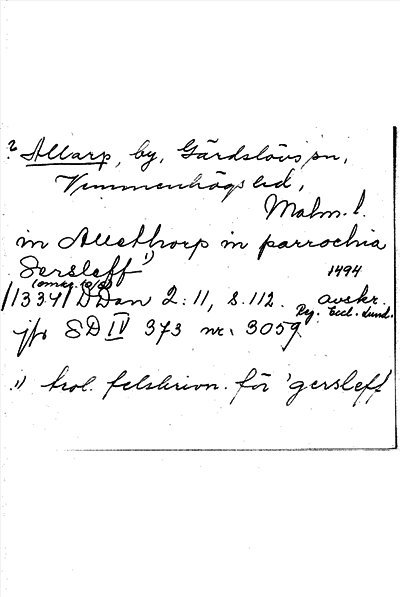 ? Allarp, by, Gärdslövs sn,
Vemmenhögs hd,
Malm. l.
in Allethorp in parrochia
Sersleff 1)
1494
/1334/ DDan 2:11, s. 112. avskr.
Reg. Eccl. Lund.
jfr SD IV 373 nr. 3059
1) trol. felskrivn. för 'gersleff'